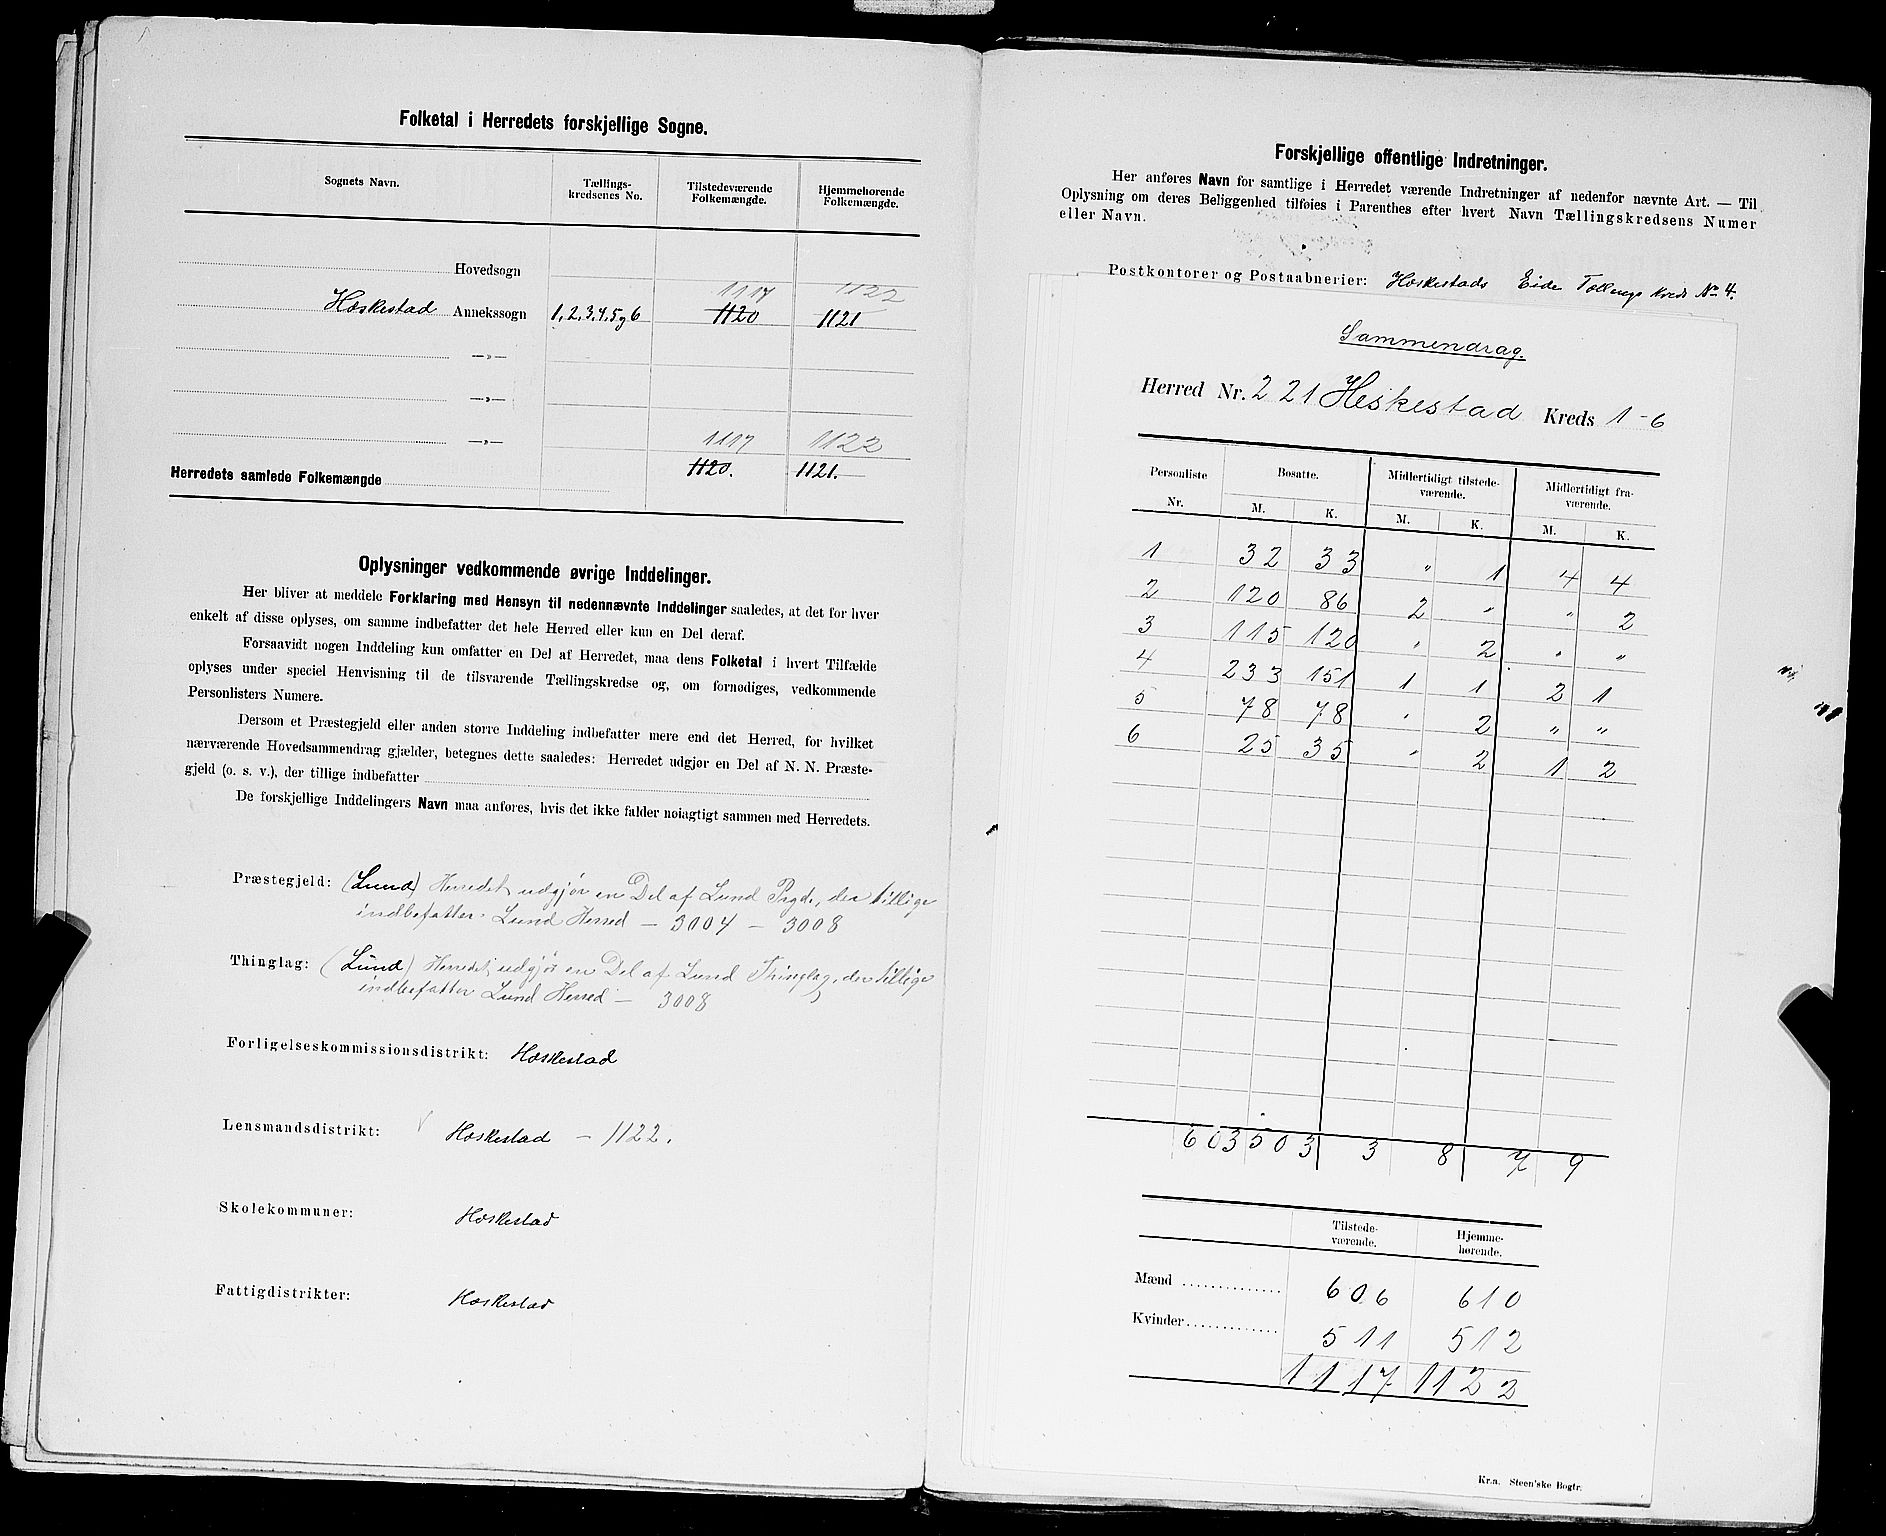 Folketal i Herredets forskjellige Sogne.
Sognets Navn. Tællings-kredsenes No. Tilstedeværende Folkemængde. Hjemmehørende Folkemængde.
Hovedsogn
1117 1122
Heskestad Annekssogn 1,2,3,4,5 og 6 1120 1121
—„—
—„—
—„— 1117 1122
Herredets samlede Folkemængde 1120. 1121.
Oplysninger vedkommende øvrige Inddelinger.
Her bliver at meddele Forklaring med Hensyn til nedennævnte Inddelinger saaledes, at det for hver
enkelt af disse oplyses, om samme indbefatter det hele Herred eller kun en Del deraf.
Forsaavidt nogen Inddeling kun omfatter en Del af Herredet, maa dens Folketal i hvert Tilfælde
oplyses under speciel Henvisning til de tilsvarende Tællingskredse og, om fornødiges, vedkommende
Personlisters Numere.
Dersom et Præstegjeld eller anden større Inddeling indbefatter mere end det Herred, for hvilket
nærværende Hovedsammendrag gjælder, betegnes dette saaledes: Herredet udgjør en Del af N. N. Præste-
gjeld (o. s. v.), der tillige indbefatter
De forskjellige Inddelingers Navn maa anføres, hvis det ikke falder nøiagtigt sammen med Herredets.
Præstegjeld: (Lund) Herredet udgjør en Del af Lund Prgd., der tillige
indbefatter Lund Herred — 3004 — 3008
Thinglag: (Lund) Herredet udgjør en Del af Lund Thinglag, der tillige
indbefatter Lund Herred — 3008
Forligelseskommissionsdistrikt: Heskestad
Lensmandsdistrikt: Heskestad — 1122.
Skolekommuner: Heskestad
Fattigdistrikter: Heskestad
Forskjellige offentlige Indretninger.
Her anføres Navn for samtlige i Herredet værende Indretninger af nedenfor nævnte Art. — Til
Oplysning om deres Beliggenhed tilføies i Parenthes efter hvert Navn Tællingskredsens Numer
eller Navn.
Postkontorer og Postaabnerier: Heskestads Eide Tællings Kreds No 4.
Sammendrag.
Herred Nr. 221 Heskestad Kreds 1-6
Personliste Nr. Bosatte. Midlertidigt tilstede-værende. Midlertidigt fra-værende.
M. K. M. K. M. K.
1 32 33 „ 1 4 4
2 120 86 2 „ „ 2
3 115 120 „ 2 „ „
4 233 151 1 1 2 1
5 78 78 „ 2 „ „
6 25 35 „ 2 1 2
603 503 3 8 7 9
Tilstede-værende. Hjemme-hørende.
Mænd 606 610
Kvinder 511 512
1117 1122
Kr.a. Steen'ske Bogtr.